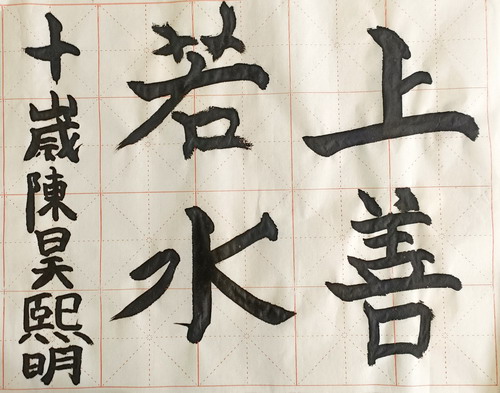 上善
若水
十歲陳昊熙明